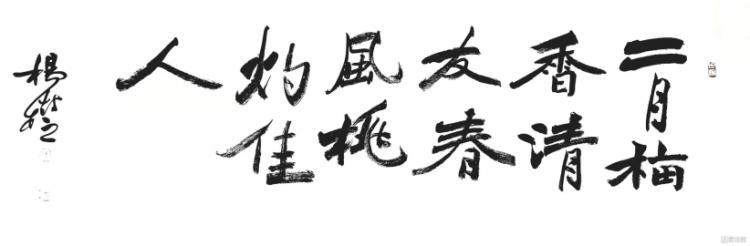 二月梅
香清
友春
風桃
灼佳
人